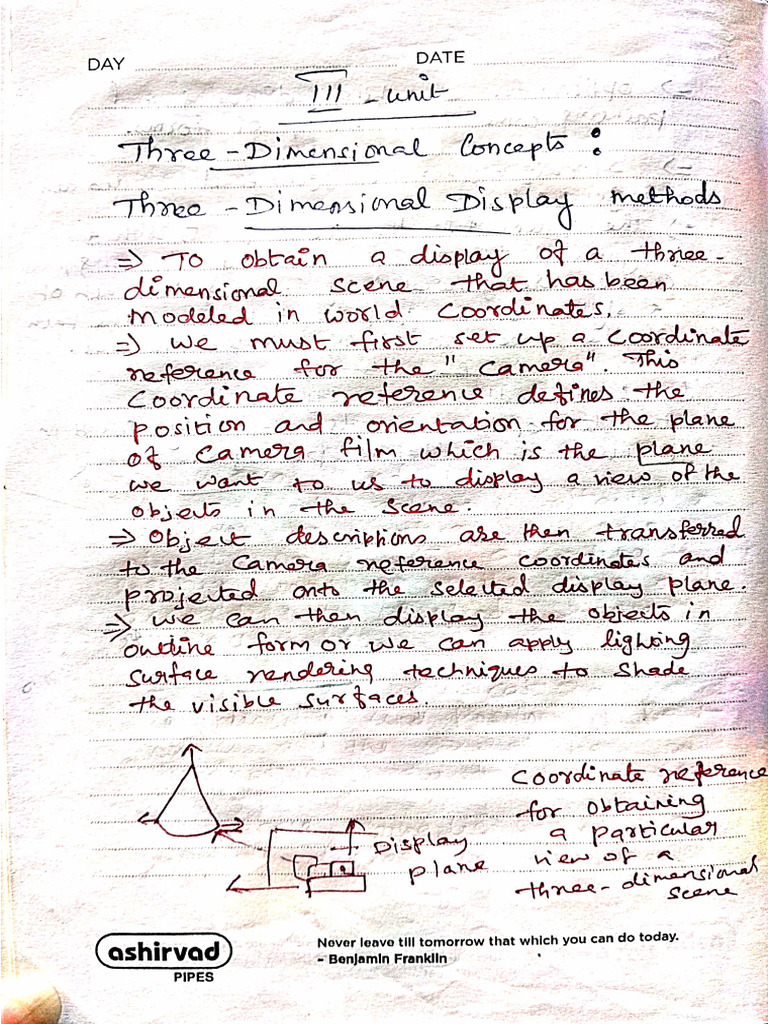 DAY DATE
III - unit
Three-Dimensional Concepts:
Three-Dimensional Display methods
⇒ To obtain a display of a three-
dimensional scene that has been
modeled in world coordinates.
⇒ we must first set up a coordinate
reference for the "camera". This
Coordinate reference defines the
position and orientation for the plane
of camera film which is the plane
we want to us to display a view of the
objects in the scene.
⇒ Object descriptions are then transferred
to the camera reference coordinates and
projected onto the selected display plane.
⇒ we can then display the objects in
outline form or we can apply lighting
surface rendering techniques to shade
the visible surfaces.
Display
plane
Coordinate reference
for obtaining
a particular
view of a
three-dimensional
scene
ashirvad
PIPES
Never leave till tomorrow that which you can do today.
- Benjamin Franklin